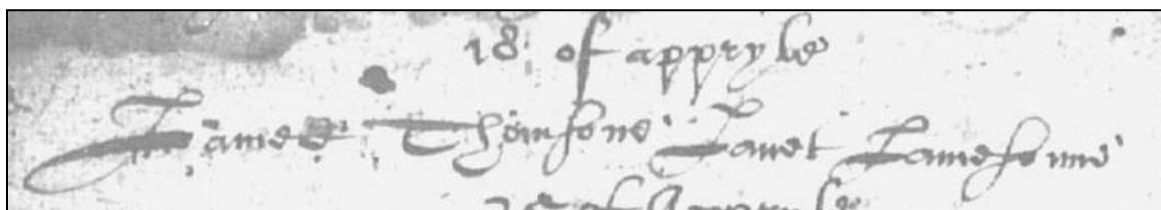 18 of appryle
James Thomsone Janet Jamesonne
of Appryle